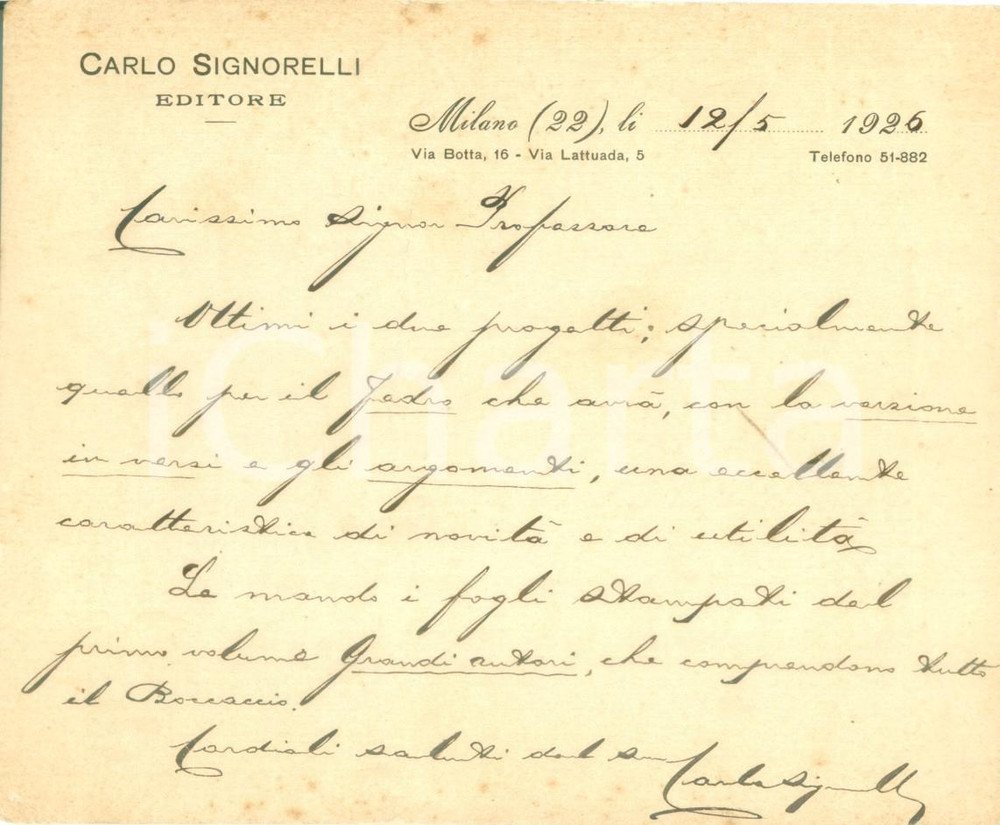 CARLO SIGNORELLI
EDITORE
Milano (22), li 12/5 1926
Via Botta, 16 - Via Lattuada, 5 Telefono 51-882
Carissimo Signor Professore
Ottimi i due progetti; specialmente
quello per il Fedro che avrà, con la versione
in versi e gli argomenti, una eccellente
caratteristica di novità e di utilità
Le mando i fogli stampati del
primo volume Grandi autori, che comprendono tutto
il Boccaccio.
Cordiali saluti dal suo
Carlo Signorelli
iCharta